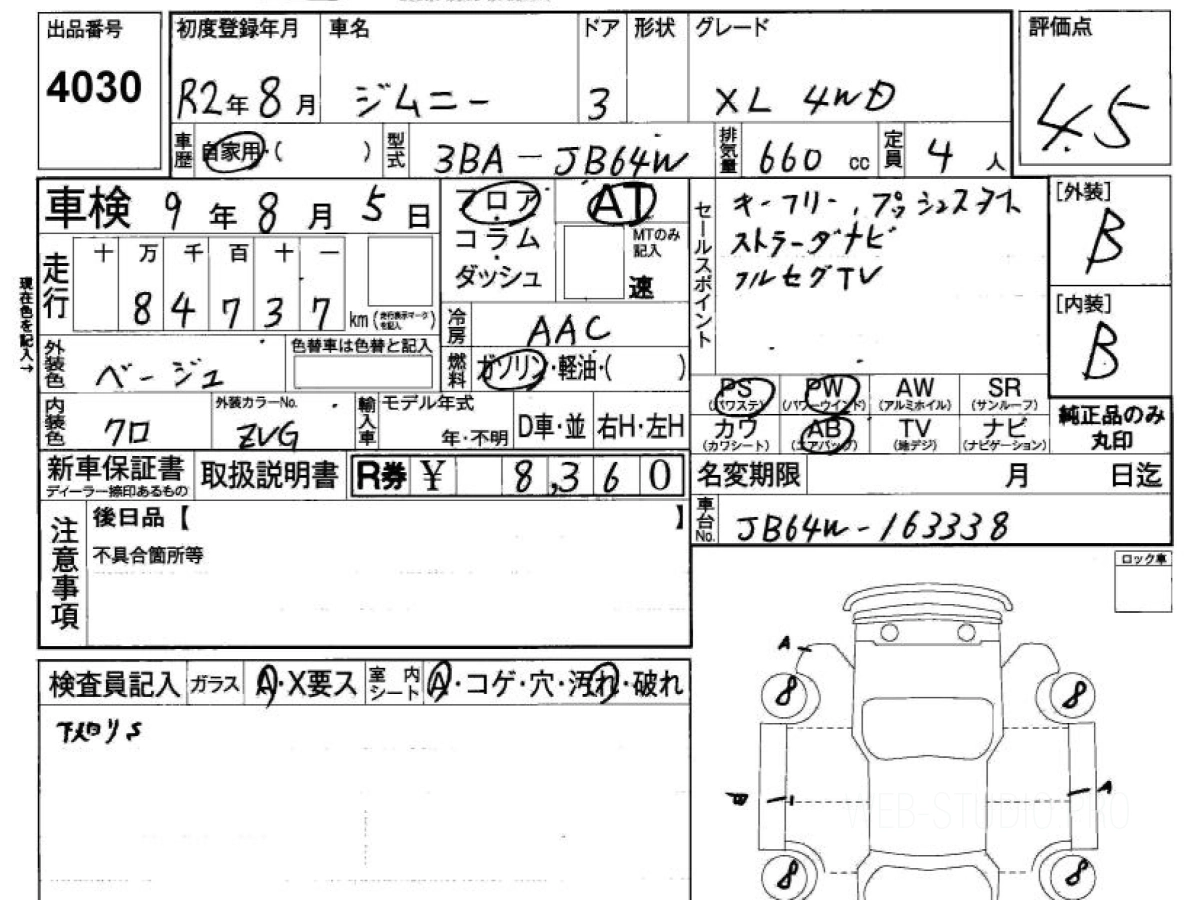 出品番号
4030
初度登録年月
R2年8月
車名
ジムニー
ドア
3
形状
グレード
XL 4WD
評価点
4.5
車歴
自家用・( )
型式
3BA-JB64W
排気量
660 cc
定員
4人
車検 9年8月5日
フロア
コラム
ダッシュ
AT
MTのみ記入
速
セールスポイント
キーフリー、プッシュスタスト
ストラーダナビ
フルセグTV
[外装]
B
[内装]
B
現在色を記入→
走行
十 万 千 百 十 一
8 4 7 3 7
km (走行表示マークを記入)
冷房
AAC
燃料
ガソリン・軽油・( )
外装色
ベージュ
色替車は色替と記入
内装色
クロ
外装カラーNo.
ZVG
輸入車
モデル年式
年・不明
D車・並
右H・左H
PS (パワステ)
PW (パワーウインド)
AW (アルミホイル)
SR (サンルーフ)
カワ (カワシート)
AB (エアバッグ)
TV (地デジ)
ナビ (ナビゲーション)
純正品のみ丸印
新車保証書
ディーラー捺印あるもの
取扱説明書
R券 ¥ 8,360
名変期限 月 日迄
車台No.
JB64W-163338
注意事項
後日品【 】
不具合箇所等
ロック車
検査員記入
ガラス
A・X要ス
室内シート
A・コゲ・穴・汚れ・破れ
下廻りS
A
8
8
B
A
8
8
WEB-STUDIO.PRO